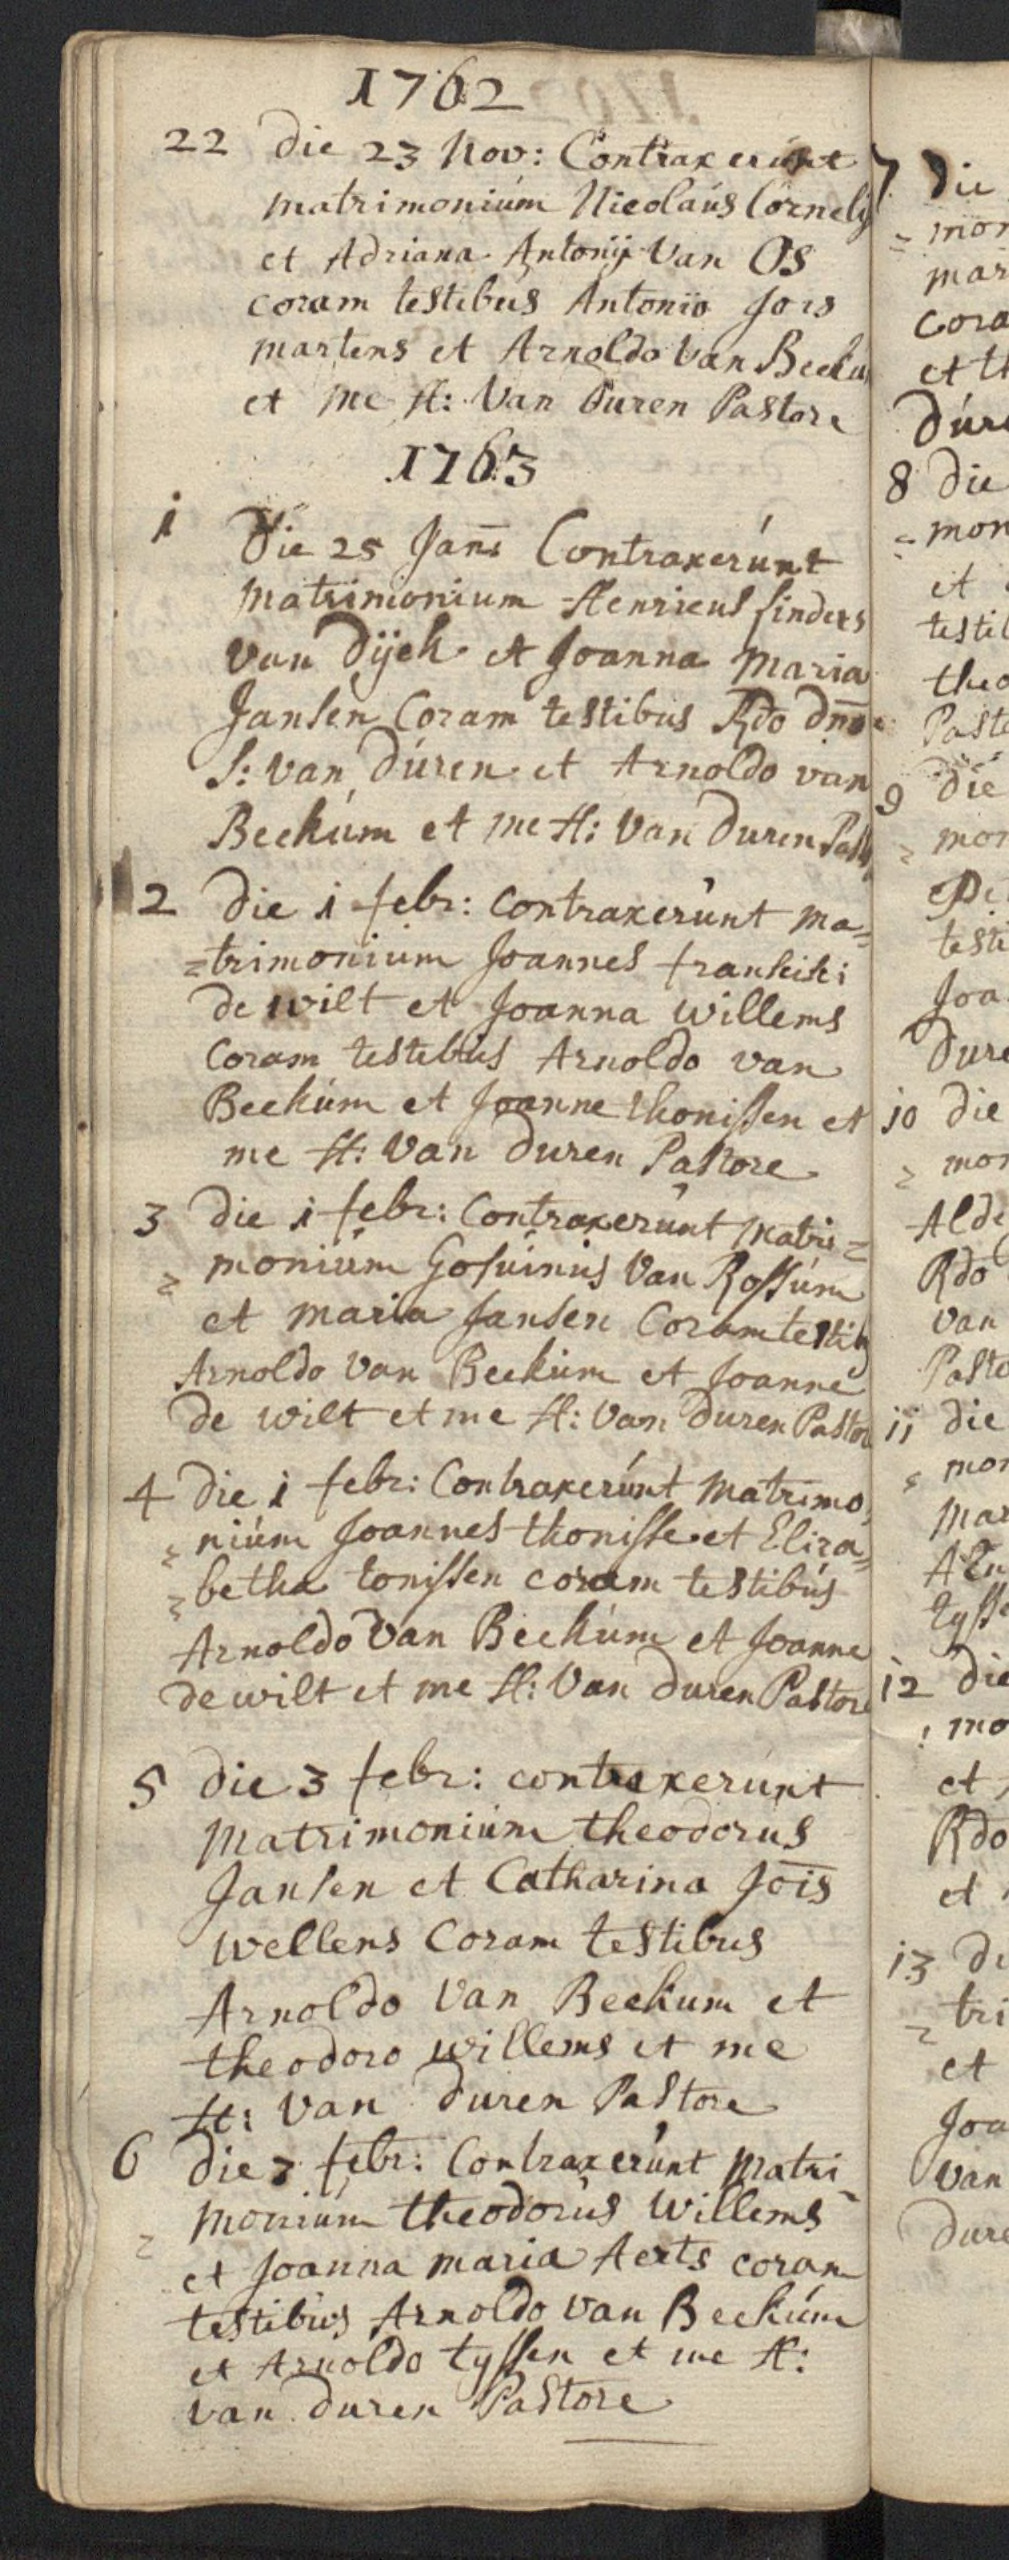 1762
22 die 23 Nov: Contraxerunt
matrimoniúm Nicolaús Cornelij
et Adriana Antonij Van Os
coram testibus Antonio Jois
martens et Arnoldo Van Beekum
et me H: Van Duren Pastore
1763
1 Die 25 Jan: Contraxerúnt
matrimonium Henricus
van Dijck et Joanna Maria
Jansen Coram testibus Rdo dno
S: van Dúren et Arnoldo van
Beekúm et me H: Van Duren Past
2 die 1 febr: contraxerúnt ma=
=trimonium Joannes
de wilt et Joanna Willems
Coram testibus Arnoldo van
Beekúm et Joanne thonissen et
me H: Van Duren Pastore
3 die 1 febr: Contraxerúnt Matri=
monium Gosuinus Van Rossúm
et maria Jansen Coram testib
Arnoldo Van Beekum et Joanne
de wilt et me H: Van Duren Pastor
4 die 1 febr: Contraxerúnt Matrimo
niúm Joannes thonisse et Eliza=
betha tonissen coram testibús
Arnoldo Van Beekúm et Joanne
de wilt et me H: Van Duren Pastore
5 die 3 febr: contraxerunt
Matrimoniúm theodorus
Jansen et Catharina Jois
wellens Coram testibus
Arnoldo Van Beekum et
theodoro willems et me
H: Van Duren Pastore
6 die 7 febr: Contraxerúnt Matri
monium theodorús Willems
et Joanna maria Aerts coram
testibus Arnoldo van Beekúm
et Arnoldo tyssen et me H:
van Duren Pastore
7 Die
mon
mar
Cora
et
Dúre
8 die
-mon
et
testib
theo
Pasto
9 die
mon
testi
Joa
Dure
10 die
mon
Alde
Rdo
van
Pasto
11 die
mon
Mar
tysse
12 die
mo
et
Rdo
et
13 di
tri
et
Joa
van
Dure